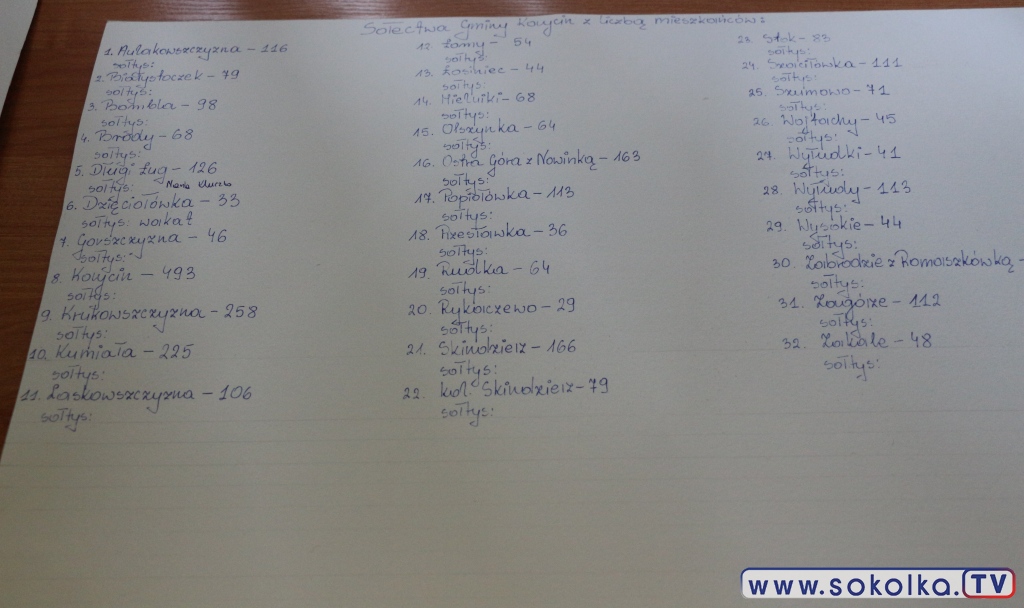 Sołectwa Gminy Korycin z liczbą mieszkańców:
1. Aulakowszczyzna - 116
sołtys:
2. Białystoczek - 79
sołtys:
3. Bombla - 98
sołtys:
4. Brody - 68
sołtys:
5. Długi Ług - 126
sołtys: Maria
6. Dzięciołówka - 33
sołtys: wakat
7. Gorszczyzna - 46
sołtys:
8. Korycin - 493
sołtys:
9. Krukowszczyzna - 258
sołtys:
10. Kumiała - 225
sołtys:
11. Laskowszczyzna - 106
sołtys:
12. Łomy - 54
sołtys:
13. Łosiniec - 44
sołtys:
14. Mielniki - 68
sołtys:
15. Olszynka - 64
sołtys:
16. Ostra Góra z Nowinką - 163
sołtys:
17. Popiołówka - 113
sołtys:
18. Przesławka - 36
sołtys:
19. Rudka - 64
sołtys:
20. Rykaczewo - 29
sołtys:
21. Skindzierz - 166
sołtys:
22. kol. Skindzierz - 79
sołtys:
23. Stok - 83
sołtys:
24. Szaciłówka - 111
sołtys:
25. Szumowo - 71
sołtys:
26. Wojtachy - 45
sołtys:
27. Wyłudki - 41
sołtys:
28. Wyłudy - 113
sołtys:
29. Wysokie - 44
sołtys:
30. Zabrodzie z Romaszkówką -
sołtys:
31. Zagórze - 112
sołtys:
32. Zakale - 48
sołtys:
www.sokolka.TV